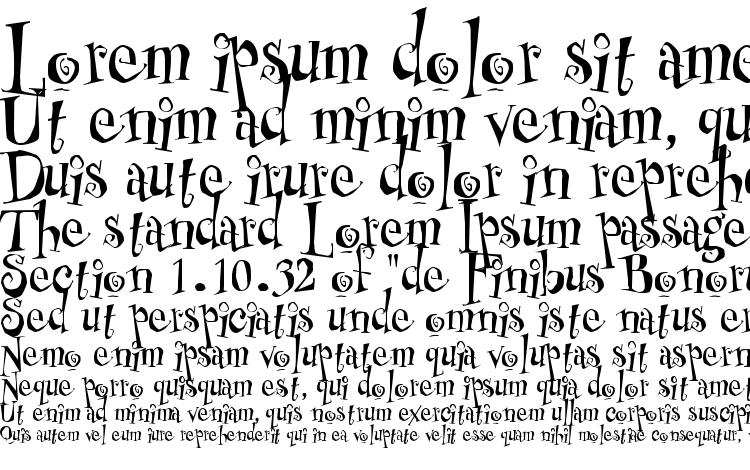 Lorem ipsum dolor sit ame
Ut enim ad minim veniam, qu
Duis aute irure dolor in reprehe
The standard Lorem Ipsum passage
Section 1.10.32 of "de Finibus Bonoru
Sed ut perspiciatis unde omnis iste natus er
Nemo enim ipsam voluptatem quia voluptas sit aspern
Neque porro quisquam est, qui dolorem ipsum quia dolor sit amet
Ut enim ad minima veniam, quis nostrum exercitationem ullam corporis suscipi
Quis autem vel eum iure reprehenderit qui in ea voluptate velit esse quam nihil molestiae consequatur,